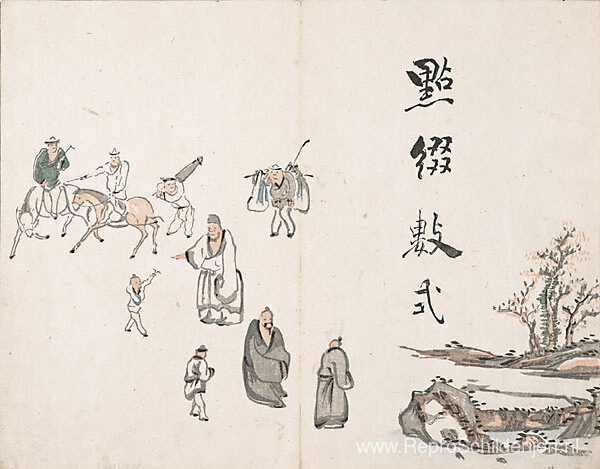 點綴數式
www.ReproSchilderijen.nl